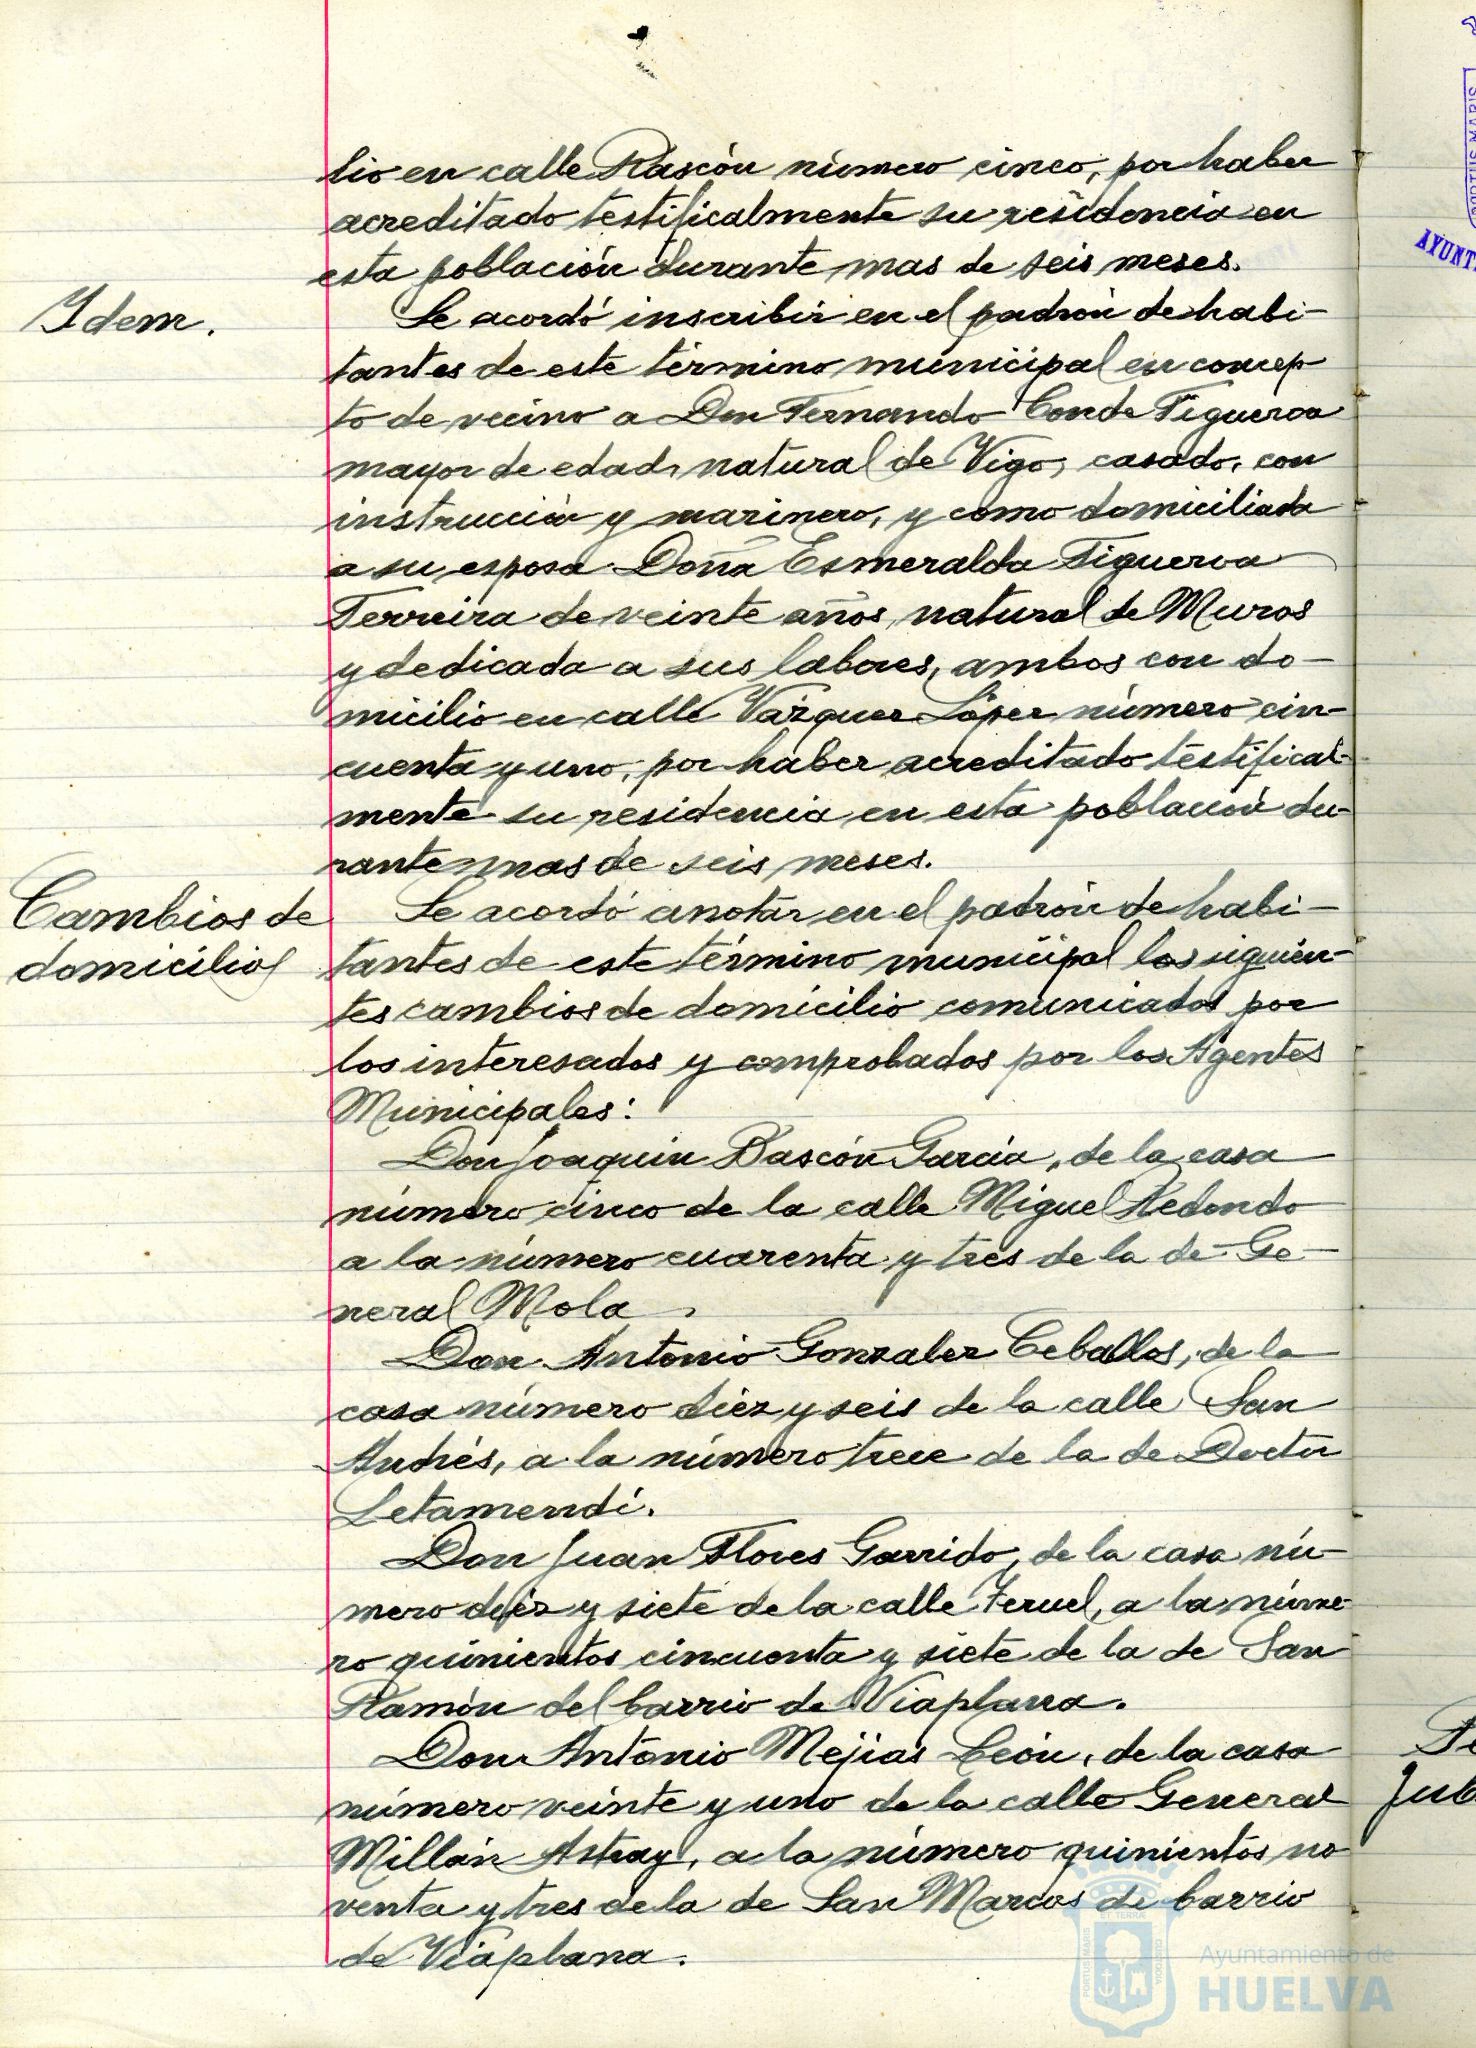 lio en calle Rascón número cinco, por haber
acreditado testificalmente su residencia en
esta población durante mas de seis meses.
Idem.
Se acordó inscribir en el padrón de habi-
tantes de este término municipal en concep
to de vecino a Don Fernando Conde Figueroa
mayor de edad, natural de Vigo, casado, con
instrucción y marinero, y como domiciliada
a su esposa Doña Esmeralda Figueroa
Ferreira de veinte años, natural de Muros
y dedicada a sus labores, ambos con do-
micilio en calle Vázquez López número cin-
cuenta y uno, por haber acreditado testifical-
mente su residencia en esta población du-
rante mas de seis meses.
Cambios de
domicilio
Se acordó anotar en el padrón de habi-
tantes de este término municipal los siguien-
tes cambios de domicilio comunicados por
los interesados y comprobados por los Agentes
Municipales:
Don Joaquín Bascón García, de la casa
número cinco de la calle Miguel Redondo
a la número cuarenta y tres de la de Ge-
neral Mola.
Don Antonio Gonzalez Ceballos, de la
casa número diez y seis de la calle San
Andrés, a la número trece de la de Doctor
Letamendi.
Don Juan Flores Garrido, de la casa nú-
mero diez y siete de la calle Teruel, a la núme-
ro quinientos cincuenta y siete de la de San
Ramón del barrio de Viaplana.
Don Antonio Mejias León, de la casa
número veinte y uno de la calle General
Millán Astray, a la número quinientos no
venta y tres de la de San Marcos de barrio
de Viaplana.
PORTUS MARIS
AYUNT
Jub
PORTUS MARIS ET TERRAE CUSTODIA
Ayuntamiento de
HUELVA